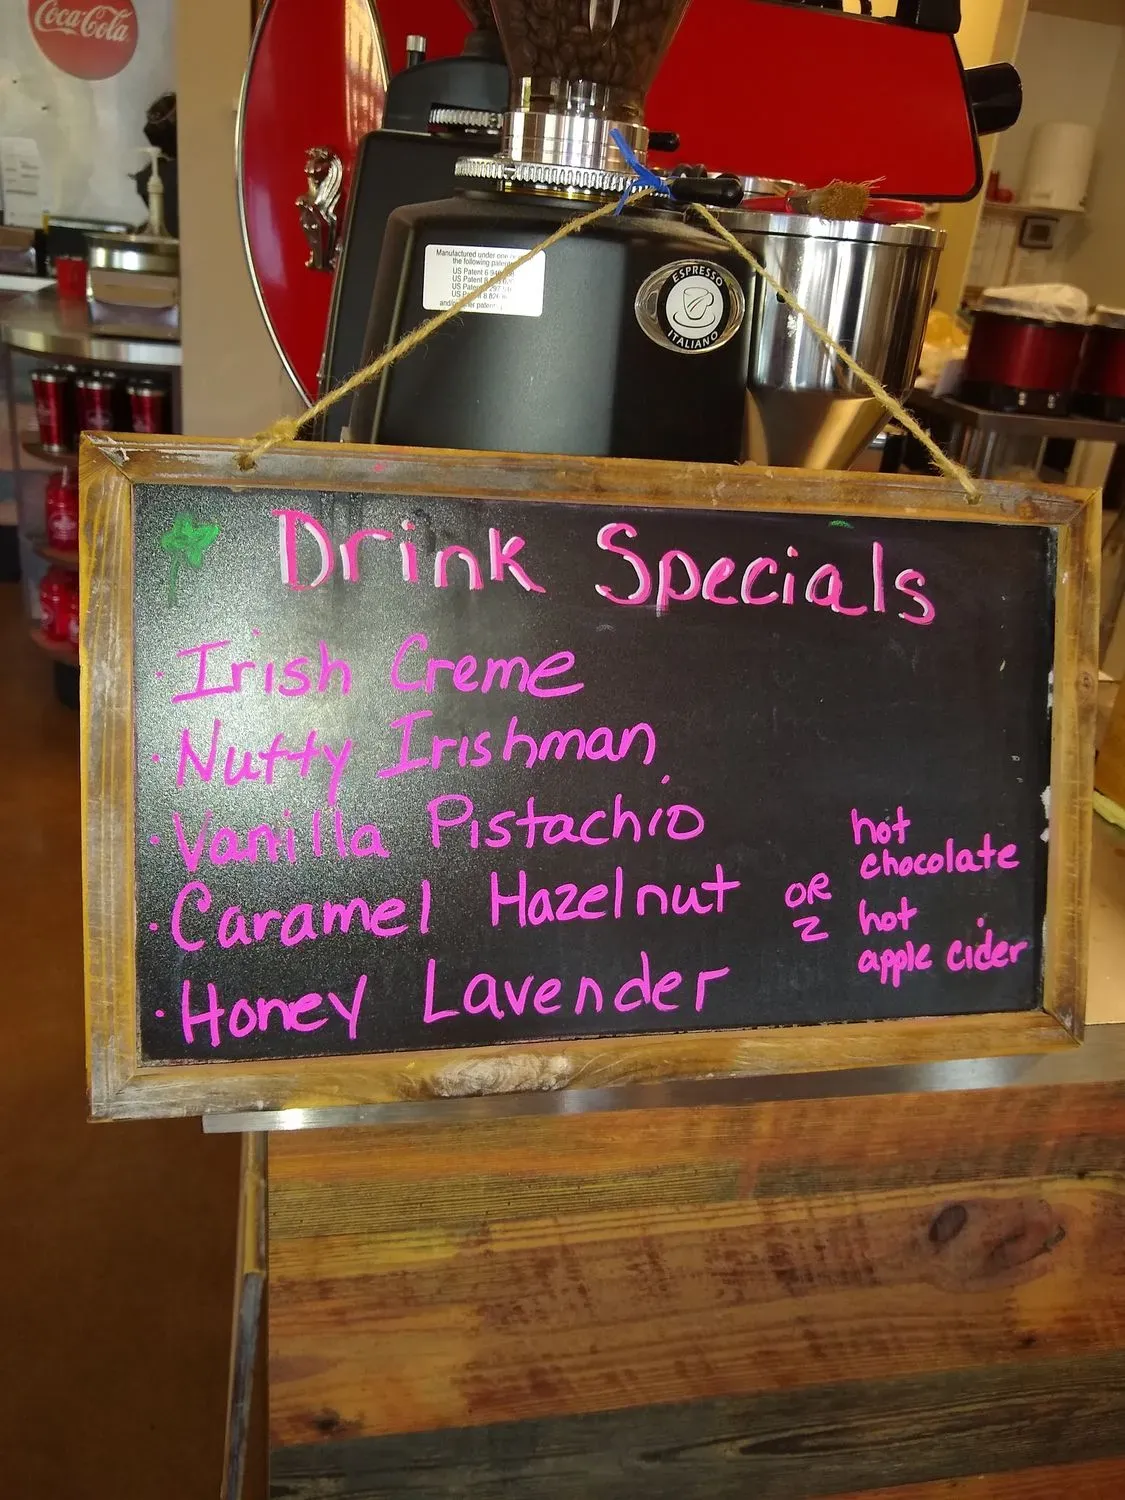 Coca-Cola
Manufactured under one
the following patent
US Patent
US Patent
US Patent
US Patent
ESPRESSO
ITALIANO
Drink Specials
· Irish Creme
· Nutty Irishman
· Vanilla Pistachio
· Caramel Hazelnut
· Honey Lavender
OR
hot
chocolate
hot
apple cider